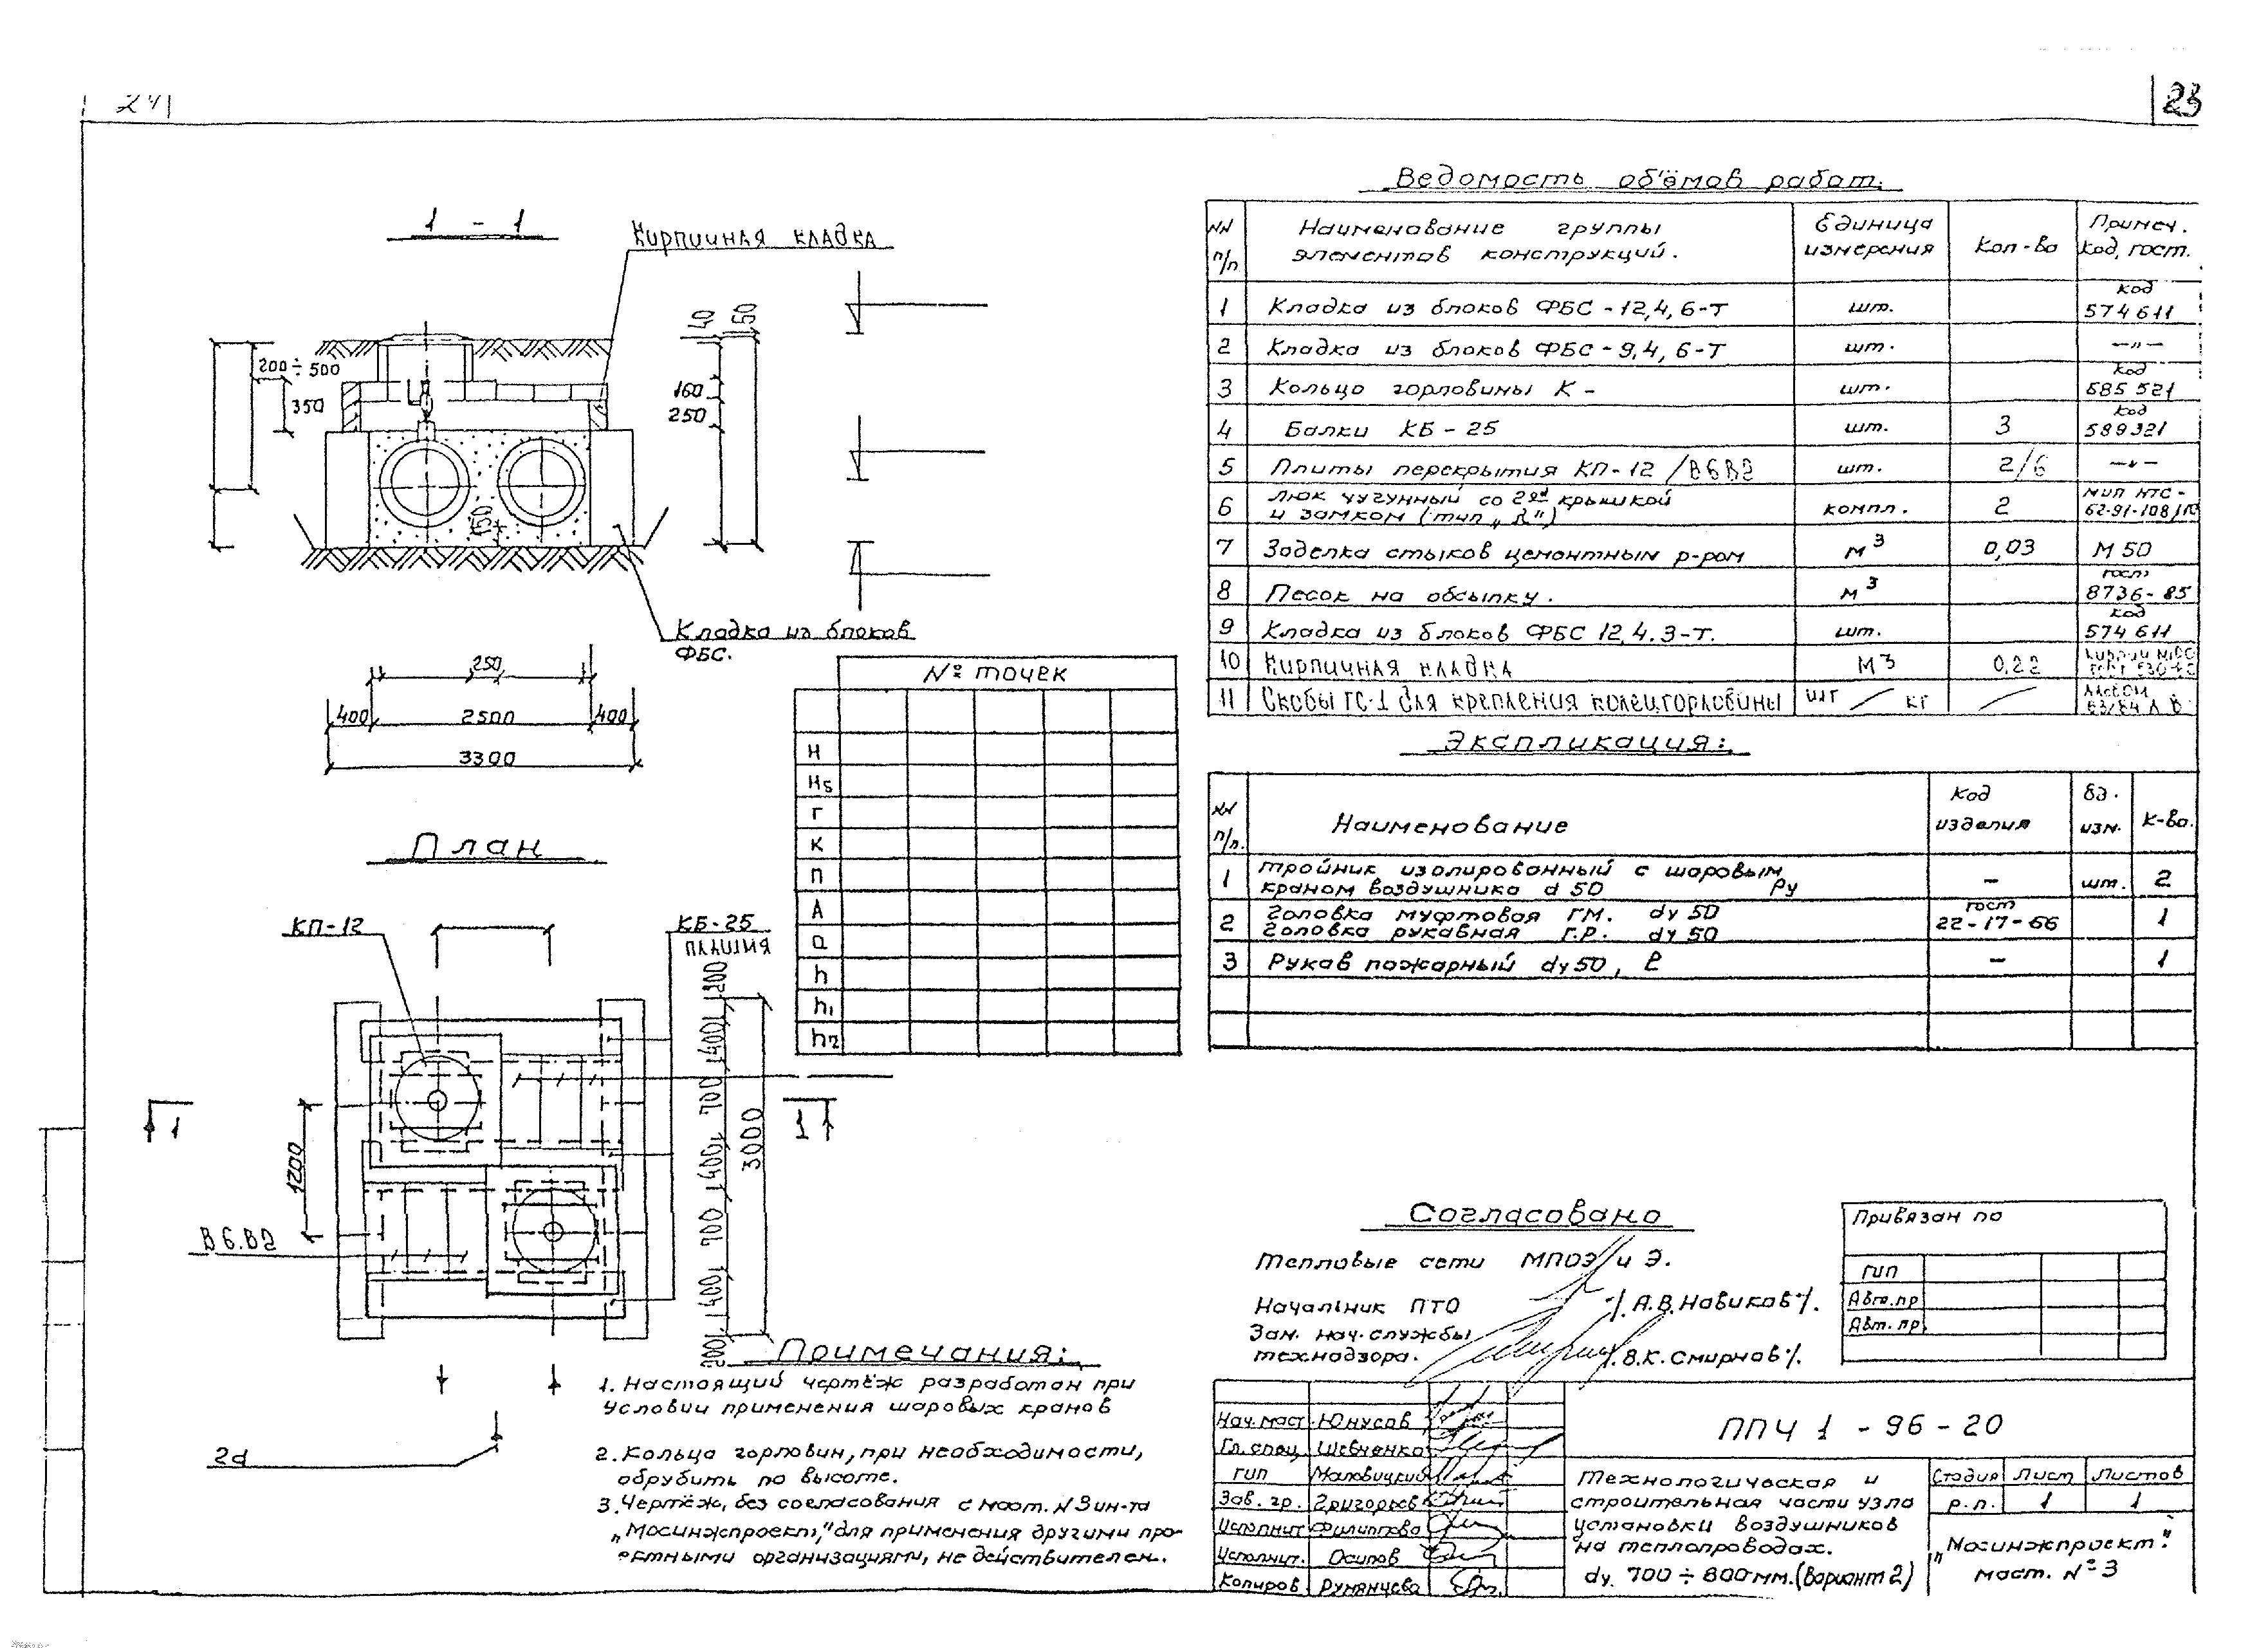 24
23
1 - 1
Кирпичная кладка
200÷500
350
40
50
160
250
150
Кладка из блоков
ФБС.
250
400
2500
400
3300
План
КП-12
КБ-25
плашмя
200
400
700
400
700
400
200
3000
1200
1
1
В6.В2
2d
№ точек
Н
Нб
Г
К
П
А
а
h
h1
h2
Ведомость объёмов работ.
NN п/п
Наименование группы элементов конструкций.
Единица измерения
Кол-во
Примеч. Код, гост.
1 Кладка из блоков ФБС-12,4,6-Т шт. код 574611
2 Кладка из блоков ФБС-9,4,6-Т шт. —"—
3 Кольцо горловины К- шт. код 585 521
4 Балки КБ-25 шт. 3 код 589321
5 Плиты перекрытия КП-12/В6В2 шт. 2/6 —"—
6 Люк чугунный со 2ой крышкой
и замком (тип „Л") компл. 2 МИП НТС-
62-91-108
7 Заделка стыков цементным р-ром м3 0,03 М 50
8 Песок на обсыпку. м3 гост 8736-85
9 Кладка из блоков ФБС 12.4.3-Т. шт. код 574611
10 Кирпичная кладка м3 0,22
11 Скобы ГС-1 для крепления колец горловины шт / кг / Альбом
Экспликация:
NN п/п.
Наименование
Код изделия
Ед. изм.
К-во.
1 Тройник изолированный с шаровым
краном воздушника d 50 Ру - шт. 2
2 Головка муфтовая ГМ. dу 50
Головка рукавная Г.Р. dу 50 гост 22-17-66 1
3 Рукав пожарный dу 50, ℓ - 1
Согласовано
Тепловые сети МПОЭ и Э.
Начальник ПТО /.А.В.Новиков/.
Зам. нач. службы
технадзора. /.В.К.Смирнов/.
Привязан по
гип
Авт.пр
Авт.пр.
Примечания:
1. Настоящий чертёж разработан при
условии применения шаровых кранов
2. Кольца горловин, при необходимости,
обрубить по высоте.
3. Чертёж, без согласования с маст. N3 ин-та
„Мосинжпроект," для применения другими про-
ектными организациями, не действителен.
Нач.маст. Юнусов
Гл.спец. Шевченко
гип Маловицкий
Зав. гр. Григорьев
Исполнит. Филиппова
Исполнит. Осипов
Копиров. Румянцева
ППЧ 1 - 96 - 20
Технологическая и
строительная части узла
установки воздушников
на теплопроводах.
dу. 700÷800мм.(вариант 2)
Стадия Лист Листов
р.п. 1 1
„Мосинжпроект"
маст. №3